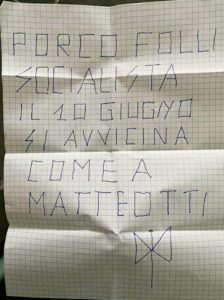 PORCO FOLLI
SOCIALISTA
IL 10 GIUGNO
SI AVVICINA
COME A
MATTEOTTI